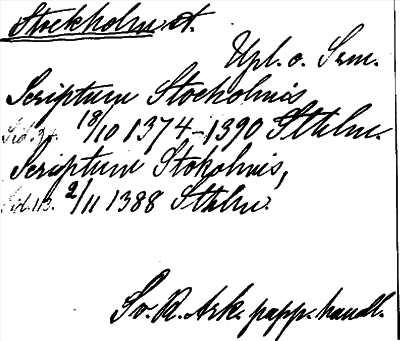 Stockholm st.
Upl. o. Srm.
Scriptum Stocholmis
Sid. 18/10 1374-1390 Sthlm.
Scriptum Stokolmis,
Sid. 113. 2/11 1388 Sthlm.
Sv. R. Ark. papp. handl.